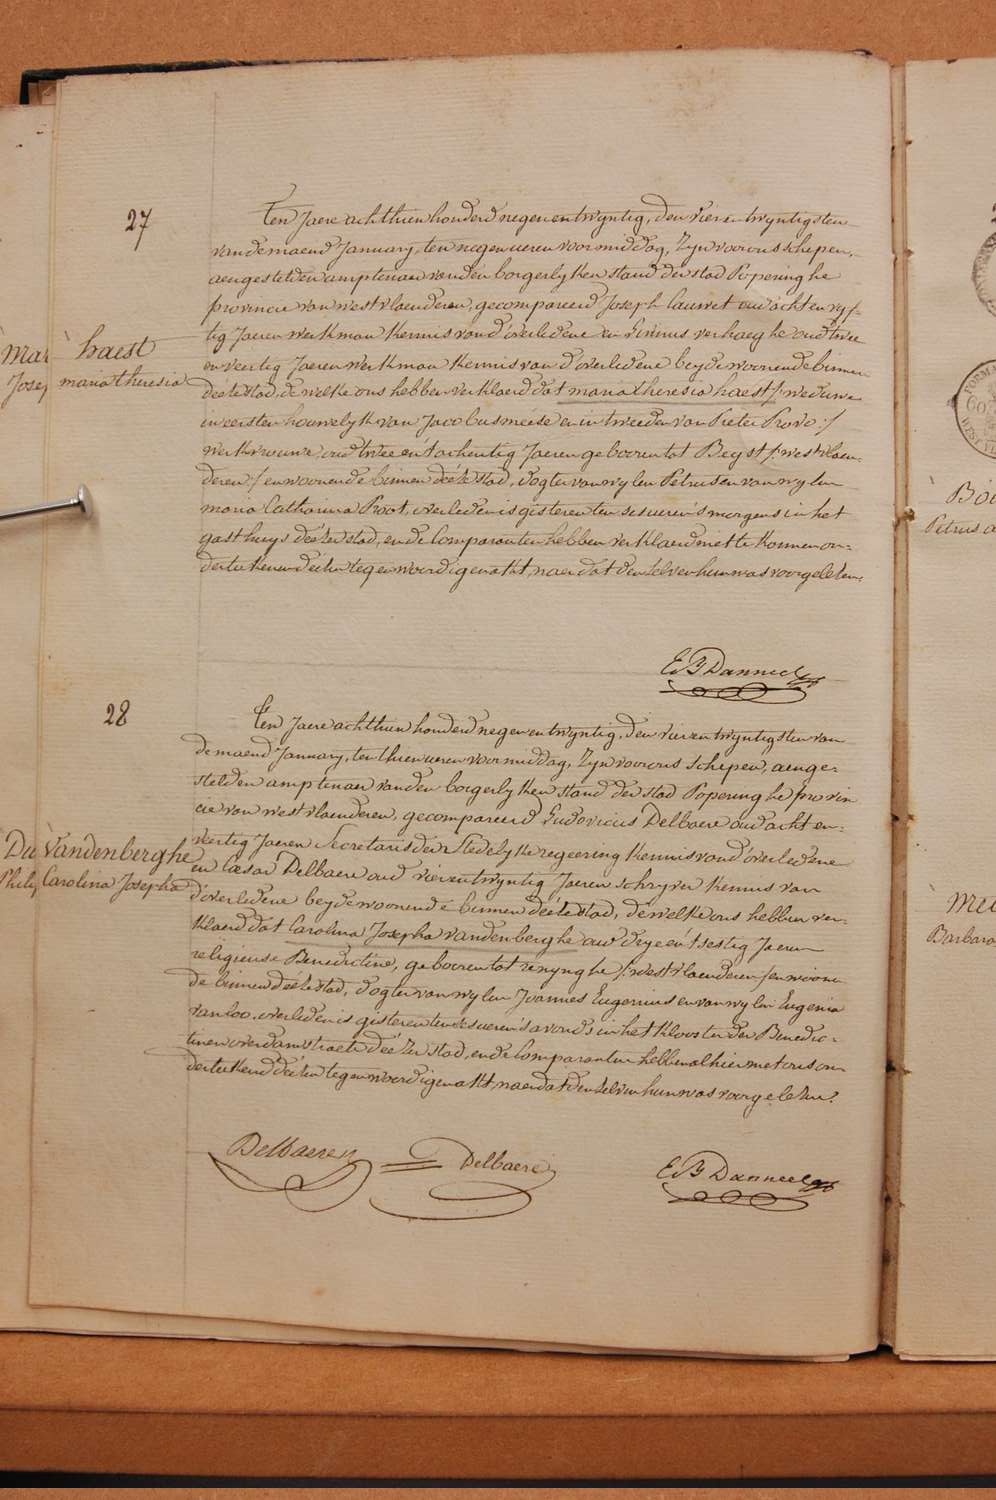 27
Ten Jaere achthien honderd negen en twyntig, den vier en twyntigsten
van de maend January, ten negen ueren voormiddag, Zyn voor ons schepen,
aengestelden amptenaer van den borgerlyken stand der stad Poperinghe
provincie van westvlaenderen, gecompareerd Joseph Cauwet oud acht en vyf-
tig Jaeren werkman kennis van d'overledene en Vinnus verhaeghe oud twee
en veertig Jaeren werkman kennis van d'overledene beyde woonende binnen
deéze stad, de welke ons hebben verklaerd dat maria theresia haest /: weduwe
in eersten houwelyk van Jacobus meése en in tweeden van Pieter Provo :/
werkvrouwe, oud twee en tachentig Jaeren gebooren tot Beyst /: westvlaen-
deren :/ en woonende binnen deéze stad, dogter van wylen Petrus en van wylen
maria Catharina Proot, overleden is gisteren ten ses ueren s'morgens in het
gasthuys deézer stad, en de Comparanten hebben verklaerd niet te konnen on-
derteekenen deézen tegenwoordigen akt, naer dat den zelven hun was voorgelezen.
haest
maria theresia
E B Danneel
28
Ten Jaere achthien honderd negen en twyntig, den vier en twyntigsten van
de maend January, ten thien ueren voormiddag, Zyn voor ons schepen, aenge-
stelden amptenaer van den borgerlyken stand der stad Poperinghe provin
cie van westvlaenderen, gecompareerd Ludovicus Delbaere oud acht en
veertig Jaeren Secretaris der Stedelyke regeering kennis van d'overledene
en Cæsar Delbaere oud vier en twyntig Jaeren schryver kennis van
d'overledene beyde woonende binnen deéze stad, de welke ons hebben ver-
klaerd dat Carolina Josepha vandenberghe oud drye en t'sestig Jaeren
religieuse Benedictine, gebooren tot renynghe /: westvlaenderen :/ en woonen
de binnen deéze stad, dogter van wylen Joannes Eugenius en van wylen Eugenia
van loo, overleden is gisteren ten ses ueren s'avonds in het klooster der Benedic-
tinen overdamstraete deézer stad, en de Comparanten hebben alhier met ons on-
derteekend deézen tegenwoordigen akt, naer dat den zelven hun was voorgelezen.
Vandenberghe
Carolina Josepha
Delbaere Delbaere E B Danneel